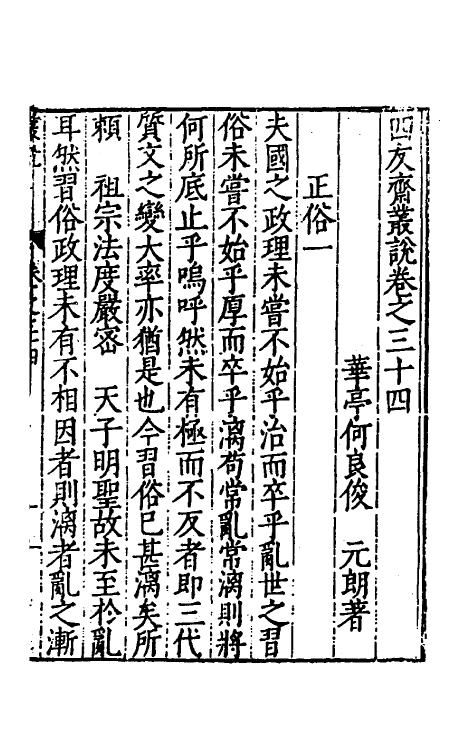 四友齋叢說卷之三十四
華亭何良俊　元朗著
正俗一
夫國之政理未嘗不始乎治而卒乎亂世之習
俗未嘗不始乎厚而卒乎漓苟常亂常漓則將
何所底止乎嗚呼然未有極而不反者即三代
質文之變大率亦猶是也今習俗已甚漓矣所
賴　祖宗法度嚴密　天子明聖故未至於亂
耳然習俗政理未有不相因者則漓者亂之漸